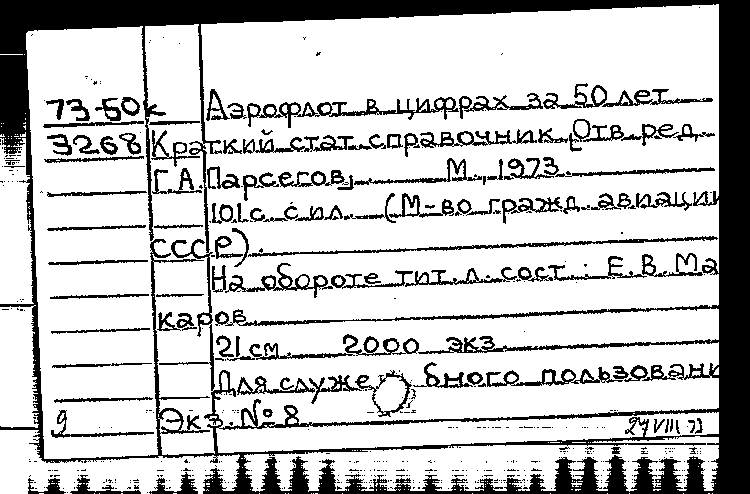 73-50к Аэрофлот в цифрах за 50 лет
3268 Краткий стат. справочник. [Отв. ред.
Г.А. Парсегов]. М., 1973.
101 с. с ил. (М-во гражд. авиации
СССР).
На обороте тит. л. сост.: Е.В. Ма
каров.
21 см. 2000 экз.
Для служебного пользовани
9 Экз. № 8
24 VIII 73